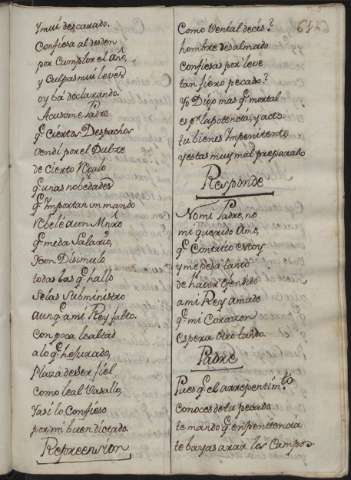 Y mui descarado.
Confiesa al desden
por Cumplir el Año,
y Culpas mui leves
oy ba declarando.
Acusome Padre
q.e Ciertos Despachos
vendi por el Dulze
de Cierto Regalo
q.e unas nobedades
q.e Importan un mando
Rebele a un Mnro
q.e me da Salario,
I con Disimulo
todas las q.e hallo
Se las Subministro
aunq.e a mi Rey falto.
con poca lealtad
a lo q.e he Jurado,
Plaza de Ser fiel
como leal Vasallo,
Y así lo Confieso
por mi buen dictado.
Reprecension
Como Venial decis?
hombre desalmado
Confiesas por leve
tan fiero pecado?
Yo Digo mas q.e mortal
es por la potencia, y acto
tu bienes Impenitente
y estas muy mal preparado
Responde
No mi Padre, no
mi querido Amo,
q.e Contrito estoy
y me pesa tanto
de haver ofendido
a mi Rey Amado
q.e mi Corazon
espera otro tanto.
Padre
Pues q.e el arrepentim.to
conoces de tu pecado
te mando q.e en penitencia
te bayas a arar los Campos